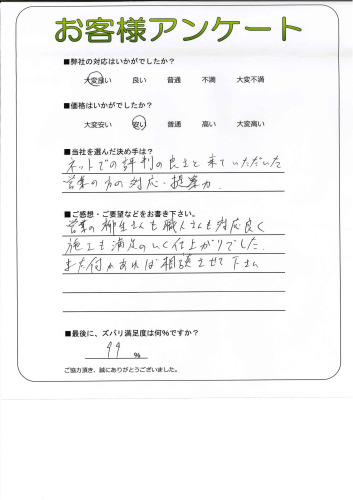 お客様アンケート
■弊社の対応はいかがでしたか？
大変良い 良い 普通 不満 大変不満
■価格はいかがでしたか？
大変安い 安い 普通 高い 大変高い
■当社を選んだ決め手は？
ネットでの評判の良さと来ていただいた
営業の方の対応・提案力
■ご感想・ご要望などをお書き下さい。
営業の柳生さんも職人さんも対応良く
施工も満足のいく仕上がりでした。
また何かあれば相談させて下さい
■最後に、ズバリ満足度は何％ですか？
99 %
ご協力頂き、誠にありがとうございました。